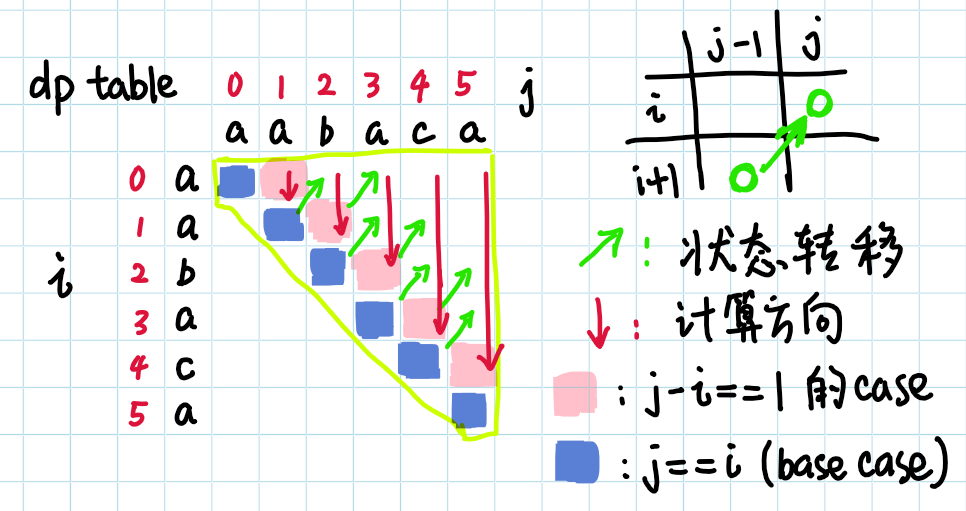 dp table 0 1 2 3 4 5 j
a a b a c a
0 a
1 a
i 2 b
3 a
4 c
5 a
j-1 j
i
i+1
: 状态转移
: 计算方向
: j-i==1 的 case
: j==i (base case)